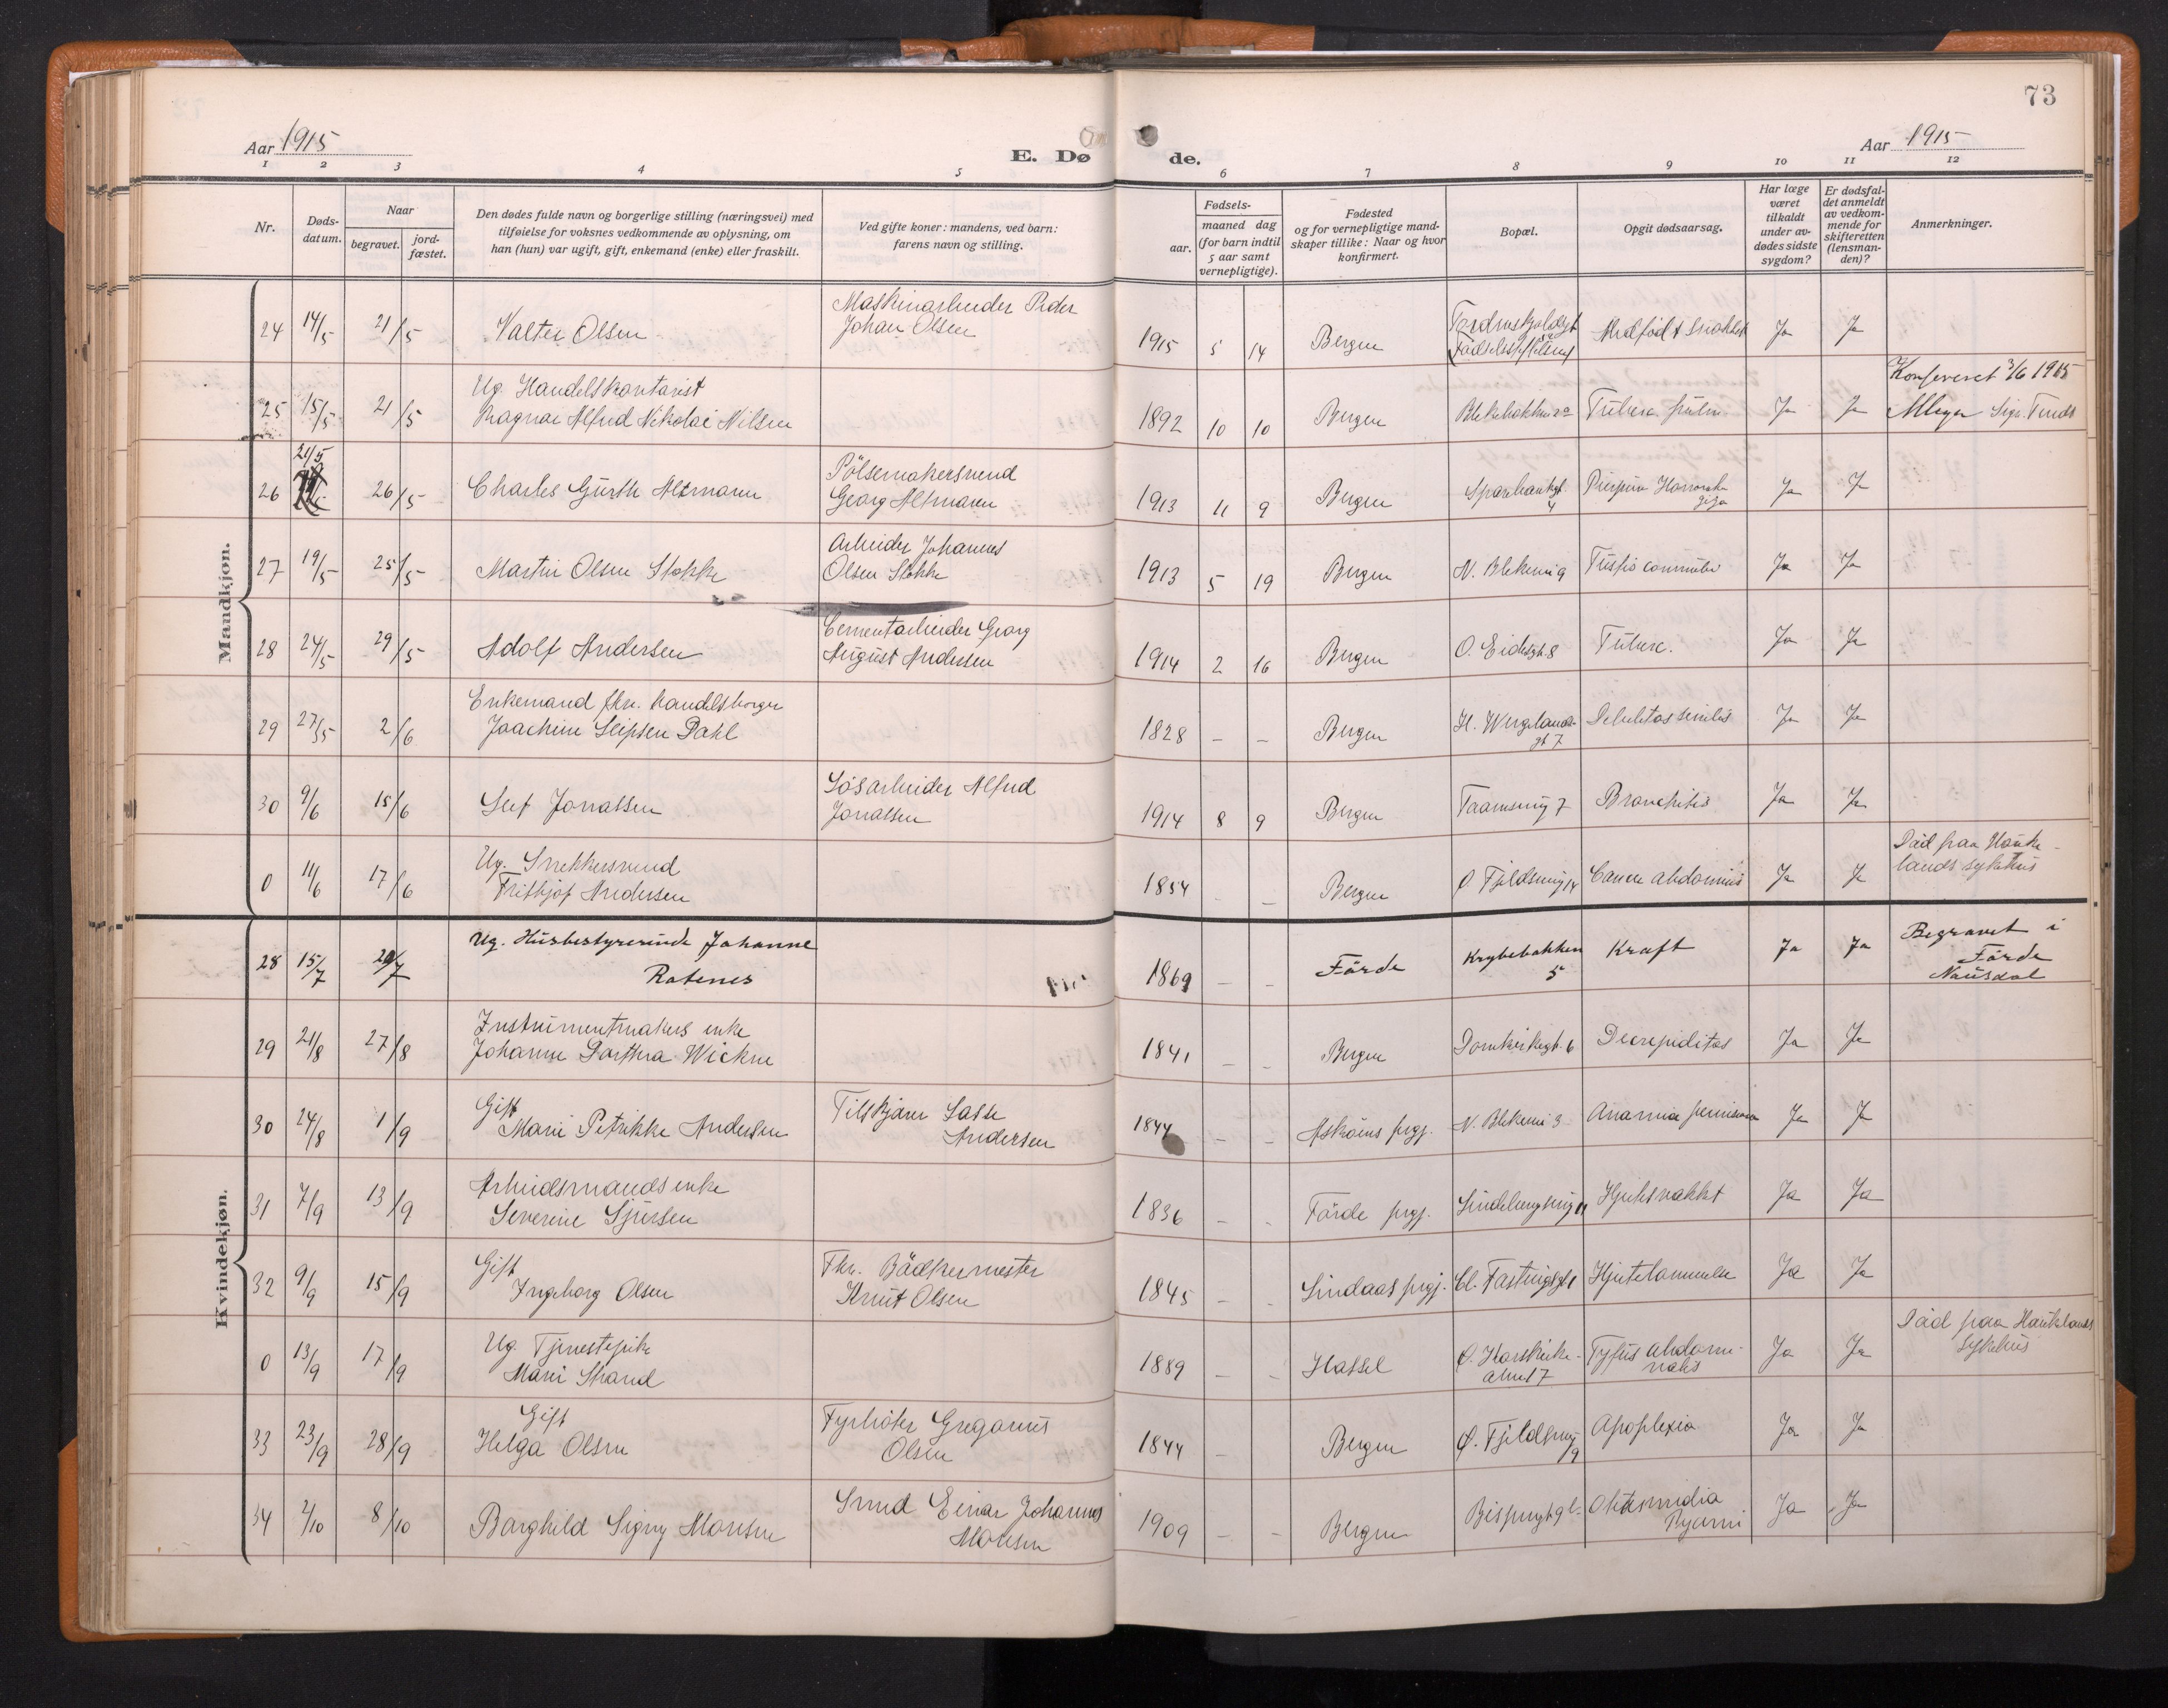 73
Aar 1915
E. Dø de.
Aar 1915
1 2 3 4 5 6 7 8 9 10 11 12
Nr.
Døds-
datum.
Naar
begravet.
jord-
fæstet.
Den dødes fulde navn og borgerlige stilling (næringsvei) med
tilføielse for voksnes vedkommende av oplysning, om
han (hun) var ugift, gift, enkemand (enke) eller fraskilt.
Ved gifte koner: mandens, ved barn:
farens navn og stilling.
Fødsels-
aar.
maaned dag
(for barn indtil
5 aar samt
vernepligtige).
Fødested
og for vernepligtige mand-
skaper tillike: Naar og hvor
konfirmert.
Bopæl.
Opgit dødsaarsag.
Har læge
været
tilkaldt
under av-
dødes sidste
sygdom?
Er dødsfal-
det anmeldt
av vedkom-
mende for
skifteretten
(lensman-
den)?
Anmerkninger.
Mandkjøn.
Maskinarbeider Peder
24 14/5 21/5 Valter Olsen Johan Olsen 1915 5 14 Bergen Ja Ja
Konfereret 3/6 1915
Ug. Handelskontorist
25 15/5 21/5 Ragnar Alfred Nikolai Nilsen 1892 10 10 Bergen Ja Ja
21/5
Pölsemakersvend
26 26/5 Charles Gürth Altmann Georg Altmann 1913 11 9 Bergen Sparbankgt. 4 Ja Ja
Arbeider Johannes
27 19/5 25/5 Martin Olsen Stokke Olsen Stokke 1913 5 19 Bergen N. Blekevei 9 Ja Ja
Cementarbeider Georg
28 24/5 29/5 Adolf Andersen August Andersen 1914 2 16 Bergen O. Eidesgt. 8 Tuberc. Ja Ja
Enkemand fhv. handelsborger
29 27/5 2/6 Joachim Seipsen Dahl 1828 – – Bergen H. Wergelands- Debilitas senilis Ja Ja
gt 7
Løsarbeider Alfred
30 9/6 15/6 Leif Jonassen Jonassen 1914 8 9 Bergen Bronchitis Ja Ja
Död paa Hauke-
lands sykehus
Ug. Snekkersvend
0 11/6 17/6 Fritkjof Andersen 1854 – – Bergen Ø Fjeldsmug 14 Cancer abdominis Ja Ja
Kvindekjøn.
Ug. Husbestyrerinde Johanne
28 15/7 20/7 Ratenes 1869 – – Förde Krybebakken 5 Kraft Ja Ja
Begravet i
Förde
Nausdal
Instrumentmakers enke
29 21/8 27/8 Johanne Dorthea Wickne 1841 – – Bergen Domkirkegt. 6 Decrepiditas Ja Ja
Gift
30 24/8 1/9 Marie Petrikke Andersen Tilskjærer Lasse Andersen 1844 – – Askøens prgj. N. Blekevei 3 Ja Ja
Arbeidsmands enke
31 7/9 13/9 Severine Sjursen 1836 – – Förde prgj. Ja Ja
Gift
Fhv. Bödkermester
32 9/9 15/9 Ingeborg Olsen Knut Olsen 1845 – – Lindaas prgj. Cl. Fastingsgt 1 Hjertelammelse Ja Ja
Död paa Hauklands
sykehus
Ug. Tjenestepike
0 13/9 17/9 Marie Strand 1889 – – Hassel Ø. Korskirke- Tyfus abdomi- Ja Ja
alm. 17 nalis
Gift
Fyrbøter Gregorius
33 23/9 28/9 Helga Olsen Olsen 1844 – Bergen Ø. Fjeldsmug 9 Apoplexia Ja Ja
Smed Einar Johannes
34 2/10 8/10 Borghild Signy Monsen Monsen 1909 – – Bergen Otitis media Ja Ja